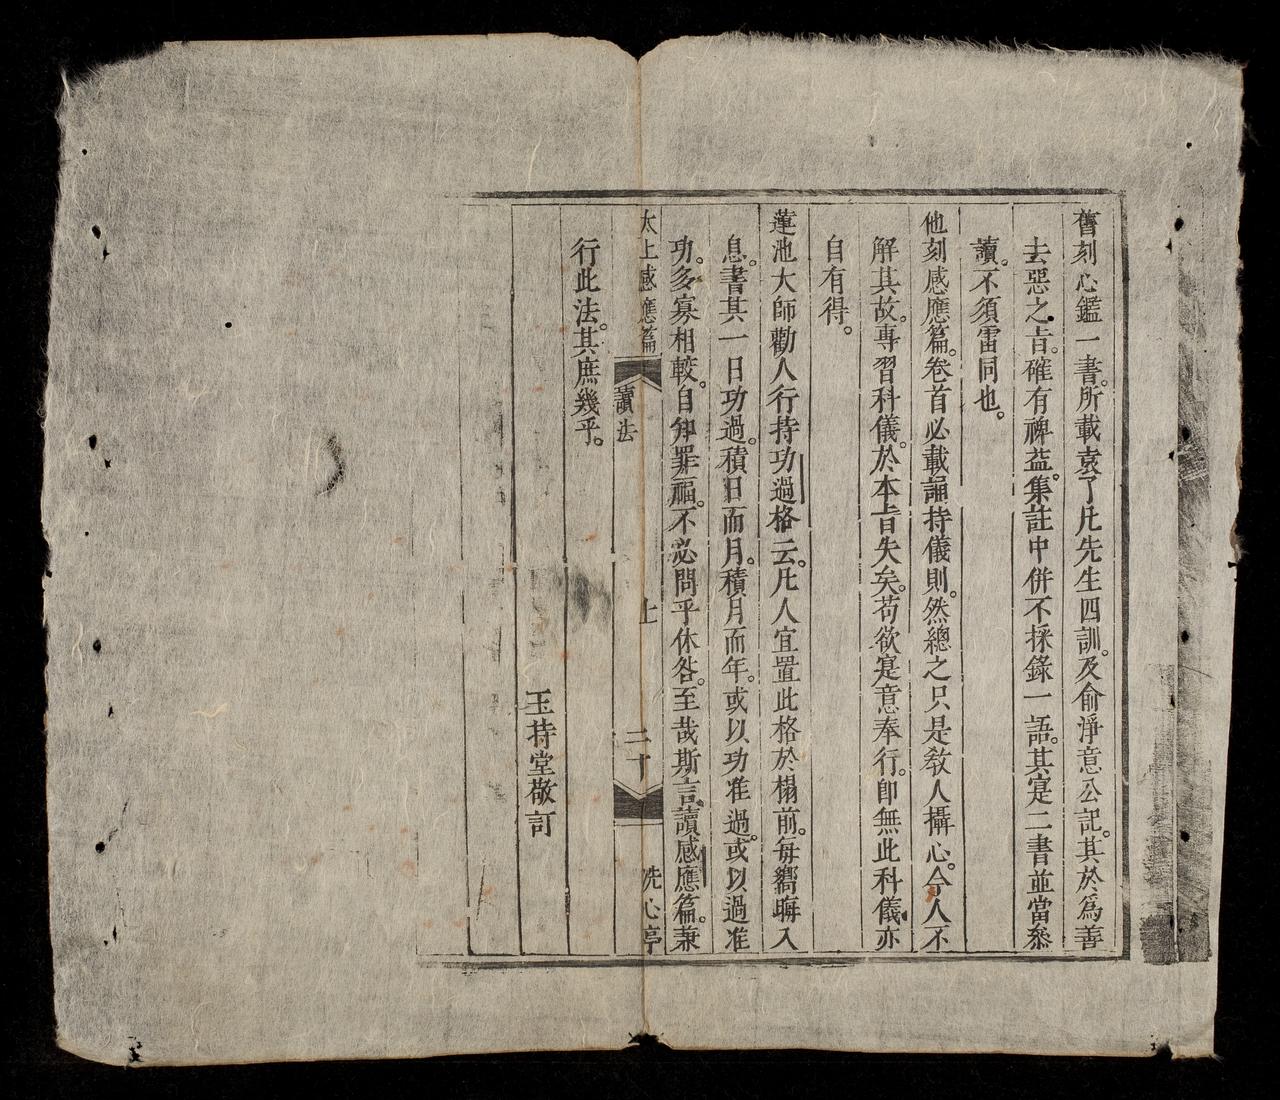 舊刻心鑑一書。所載袁了凡先生四訓。及俞淨意公記。其於為善
去惡之旨。確有裨益。集註中併不採錄一語。其寔二書並當叅
讀。不須雷同也。
他刻感應篇。卷首必載誦持儀則。然總之只是教人攝心。今人不
解其故。專習科儀。於本旨失矣。苟欲寔意奉行。卽無此科儀亦
自有得。
蓮池大師勸人行持功過格云。凡人宜置此格於榻前。每嚮晦入
息。書其一日功過。積日而月。積月而年。或以功准過。或以過准
功。多寡相較。自知罪福。不必問乎休咎。至哉斯言。讀感應篇。兼
太上感應篇 讀法 上 二十 洗心亭
行此法。其庶幾乎。
玉持堂敬訂